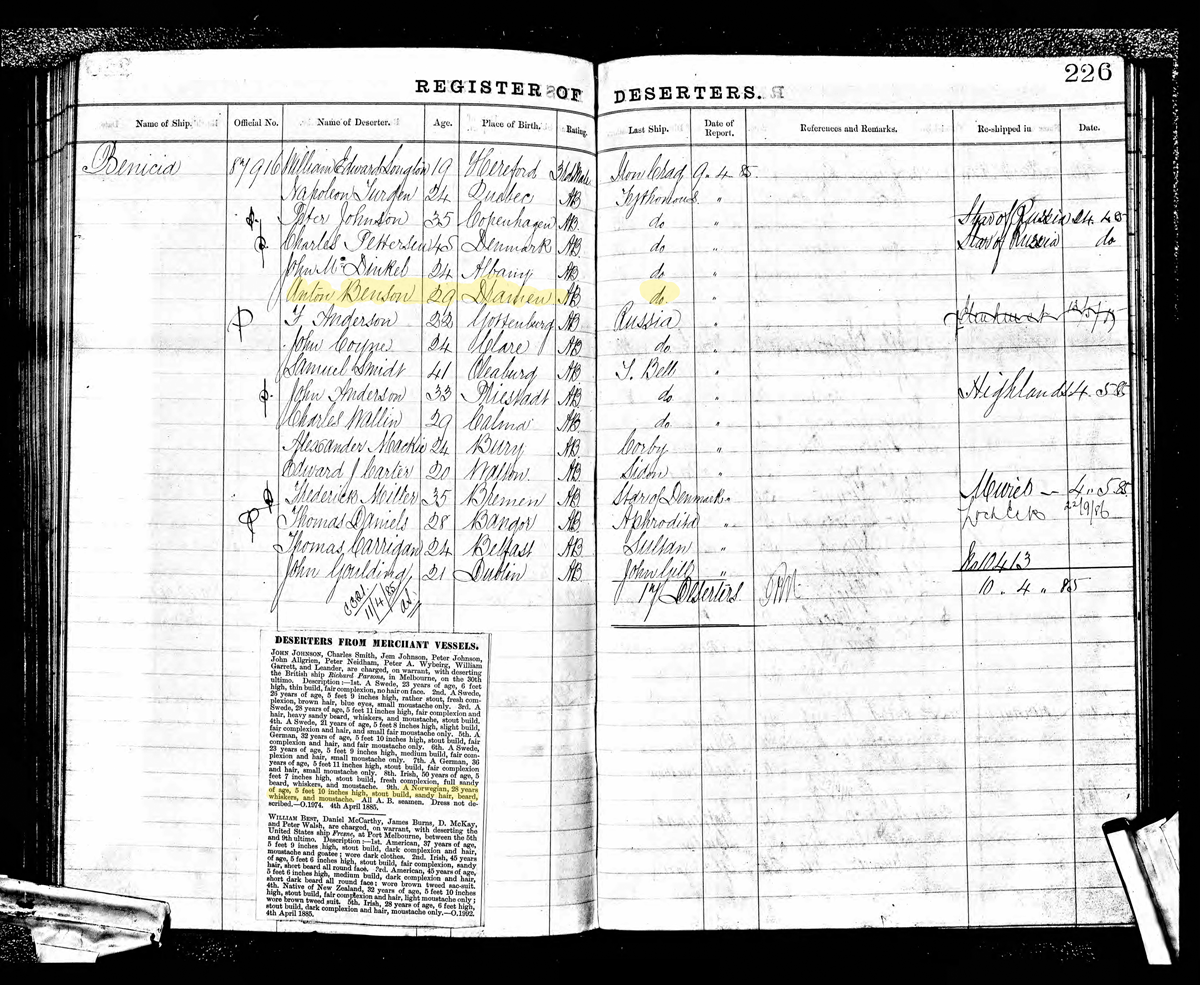 226
REGISTER OF DESERTERS.
Name of Ship. Official No. Name of Deserter. Age. Place of Birth. Rating. Last Ship. Date of Report. References and Remarks. Re-shipped in Date.
Benicia 87916 William Edward 19 Hereford 3rd Mate 9. 4. 85
Napoleon 24 Quebec AB "
Peter Johnson 35 Copenhagen AB do " Star of Russia 24 4 85
Charles Pettersen 45 Denmark AB do " Star of Russia do
John Mc Dinkel 24 Albany AB do "
Anton Benson 29 AB do "
Anderson 22 Gottenburg AB Russia "
John Coyne 24 Clare AB do "
Samuel Smidt 41 AB Bell "
John Anderson 33 AB do " Highlands 4. 5 85
Charles Wallin 29 AB do "
Alexander Mackie 24 Bury AB Corby "
Edward J Carter 20 AB Sidon "
Frederick 35 Bremen AB Star of Denmark " 4 " 5 85
Thomas Daniels 28 Bangor AB Aphrodite " 22/9/86
Thomas Carrigan 24 Belfast AB Sultan "
John Goulding 21 Dublin AB John Gill " 10413
17 Deserters 10 " 4 " 85
11/4/85
DESERTERS FROM MERCHANT VESSELS.
JOHN JOHNSON, Charles Smith, Jem Johnson, Peter Johnson,
John Allgrien, Peter Neidham, Peter A. Wybeirg, William
Garrett, and Leander, are charged, on warrant, with deserting
the British ship Richard Parsons, in Melbourne, on the 30th
ultimo. Description:—1st. A Swede, 23 years of age, 6 feet
high, thin build, fair complexion, no hair on face. 2nd. A Swede,
26 years of age, 5 feet 9 inches high, rather stout, fresh com-
plexion, brown hair, blue eyes, small moustache only. 3rd. A
Swede, 28 years of age, 5 feet 11 inches high, fair complexion and
hair, heavy sandy beard, whiskers, and moustache, stout build.
4th. A Swede, 21 years of age, 5 feet 8 inches high, slight build,
fair complexion and hair, and small fair moustache only. 5th. A
German, 32 years of age, 5 feet 10 inches high, stout build, fair
complexion and hair, and fair moustache only. 6th. A Swede,
23 years of age, 5 feet 9 inches high, medium build, fair com-
plexion and hair, small moustache only. 7th. A German, 36
years of age, 5 feet 11 inches high, stout build, fair complexion
and hair, small moustache only. 8th. Irish, 50 years of age, 5
feet 7 inches high, stout build, fresh complexion, full sandy
beard, whiskers, and moustache. 9th. A Norwegian, 28 years
of age, 5 feet 10 inches high, stout build, sandy hair, beard,
whiskers, and moustache. All A. B. seamen. Dress not de-
scribed.—O.1974. 4th April 1885.
WILLIAM BEST, Daniel McCarthy, James Burns, D. McKay,
and Peter Walsh, are charged, on warrant, with deserting the
United States ship Fresno, at Port Melbourne, between the 5th
and 9th ultimo. Description:—1st. American, 37 years of age,
5 feet 9 inches high, stout build, dark complexion and hair,
moustache and goatee; wore dark clothes. 2nd. Irish, 45 years
of age, 5 feet 6 inches high, stout build, fair complexion, sandy
hair, short beard all round face. 3rd. American, 45 years of age,
5 feet 6 inches high, medium build, dark complexion and hair,
short dark beard all round face; wore brown tweed sac-suit.
4th. Native of New Zealand, 32 years of age, 5 feet 10 inches
high, stout build, fair complexion and hair, light moustache only;
wore brown tweed suit. 5th. Irish, 28 years of age, 6 feet high,
stout build, dark complexion and hair, moustache only.—O.1992.
4th April 1885.